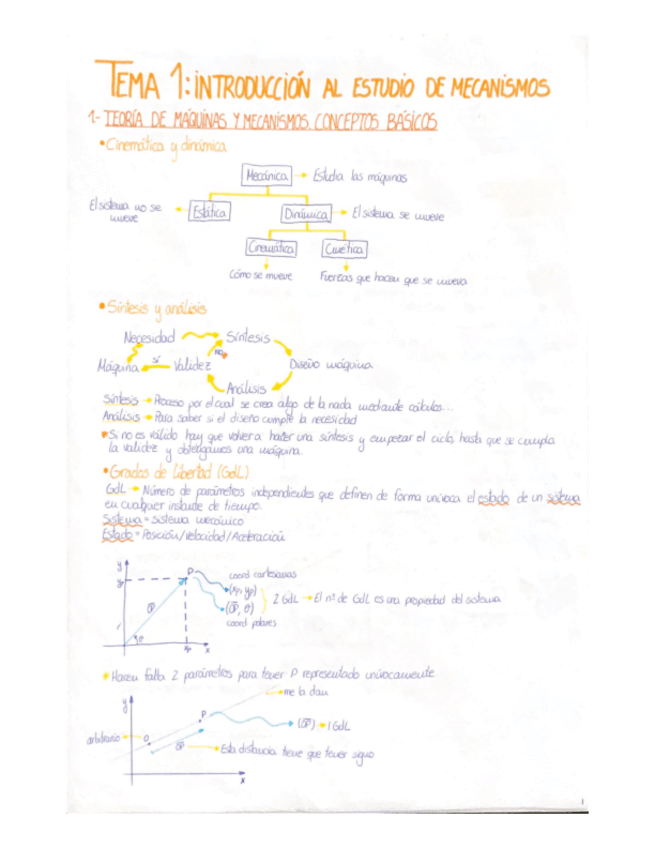 TEMA 1: INTRODUCCIÓN AL ESTUDIO DE MECANISMOS
1- TEORÍA DE MÁQUINAS Y MECANISMOS. CONCEPTOS BÁSICOS
• Cinemática y dinámica
Mecánica → Estudia las máquinas
El sistema no se mueve ← Estática
Dinámica → El sistema se mueve
Cinemática
Cinética
Cómo se mueve
Fuerzas que hacen que se mueva
• Síntesis y análisis
Necesidad
Síntesis
NO
Máquina ← sí Validez
Diseño máquina
Análisis
Síntesis → Proceso por el cual se crea algo de la nada mediante cálculos...
Análisis → Para saber si el diseño cumple la necesidad
Si no es válido hay que volver a hacer una síntesis y empezar el ciclo, hasta que se cumpla
la validez y obtengamos una máquina.
• Grados de libertad (GdL)
GdL → Número de parámetros independientes que definen de forma unívoca el estado de un sistema
en cualquier instante de tiempo.
Sistema = Sistema mecánico
Estado = Posición/Velocidad/Aceleración
y
P
coord cartesianas
yp
(xp, yp)
2 GdL → El nº de GdL es una propiedad del sistema
OP
(OP, θ)
coord polares
θ
xp
x
Hacen falta 2 parámetros para tener P representado unívocamente
me la dan
y
P
(OP) → 1 GdL
arbitrario
O
OP
Esta distancia tiene que tener signo
x
1